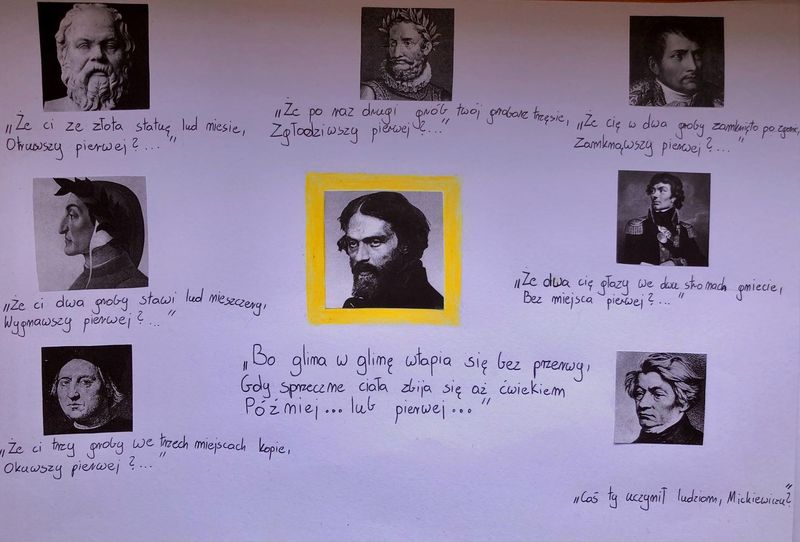 „Że ci ze złota statuę lud niesie,
Otruwszy pierwej?..."
„Że po raz drugi grób twój grabarz trzęsie,
Zgłodziwszy pierwej?..."
„Że cię w dwa groby zamknięto po zgonie,
Zamknąwszy pierwej?..."
„Że ci dwa groby stawi lud nieszczery,
Wygnawszy pierwej?..."
„Że dwa cię głazy we dwu stronach gniecie,
Bez miejsca pierwej?..."
„Bo glina w glinę wtapia się bez przerwy,
Gdy sprzeczne ciała zbija się aż ćwiekiem
Później... lub pierwej..."
„Że ci trzy groby we trzech miejscach kopie,
Okuwszy pierwej?..."
„Coś ty uczynił ludziom, Mickiewiczu?"